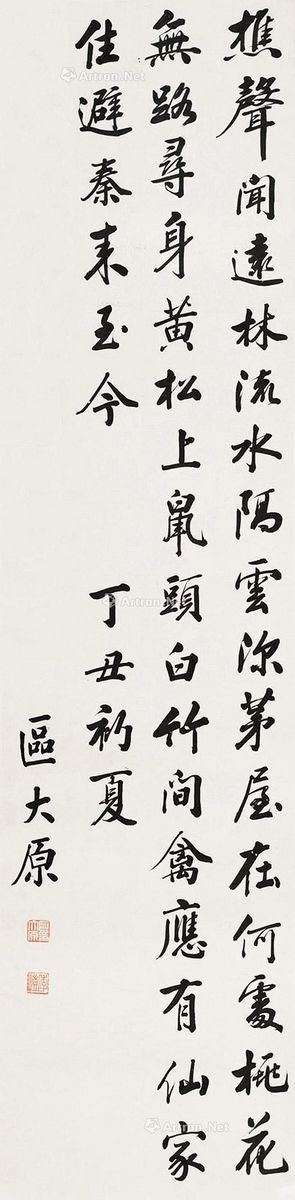 樵聲聞遠林流水隔雲深茅屋在何處桃花
無路尋身黃松上鼠頭白竹間禽應有仙家
住避秦来至今
丁丑初夏
區大原
Artron.Net
Artron.Net
Artron.Net
Artron.Net